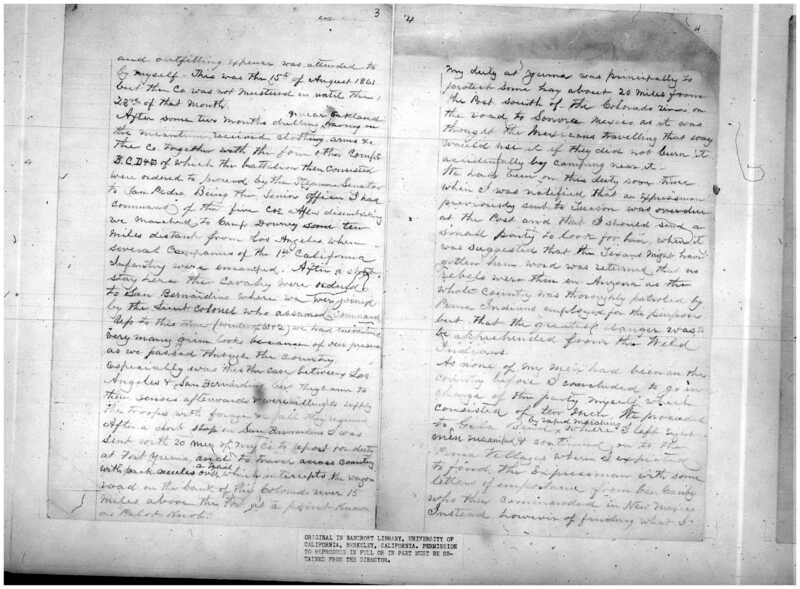 3
and outfitting expense was attended to
by myself. This was the 15th of August 1861
but the Co was not mustered in until the
28th of that Month.
After some two months drilling near Oakland having in
the meantime received clothing arms &c
the Co together with the four other Comps
B.C.D & E of which the battalion then consisted
were ordered to proceed by the Steamer Senator
to San Pedro. Being the Senior Officer I had
command of the five Cos. After disembarking
we marched to Camp Downey some ten
miles distant from Los Angeles where
several Companies of the 1st California
Infantry were encamped. After a short
stay here the Cavalry were ordered
to San Bernardino where we were joined
by the Lieut Colonel who assumed command
Up to this time we had encountered
very many grim looks because of our presence
as we passed through the Country
Especially was this the case between Los
Angeles & San Bernardino but they came to
their senses afterwards & were willing to supply
the troops with forage & all they required
After a short stop in San Bernardino I was
sent with 20 men of my Co to report for duty
at Fort Yuma, and to travel across country
with pack mules over a trail which intercepts the wagon
road on the bank of the Colorado river 15
miles above the Fort at a point known
as Pilot Knob.
4
4
My duty at Yuma was principally to
protect some hay about 20 miles from
the Post south of the Colorado river on
the road to Sonora Mexico as it was
thought the Mexicans travelling that way
would use it if they did not burn it
accidentally by camping near it.
We had been on this duty some time
when I was notified that an Expressman
previously sent to Tucson was overdue
at the Post and that I should send a
small party to look for him, when it
was suggested that the Texans might have
gotten him word was returned that no
rebels were then in Arizona as the
whole Country was thoroughly patroled by
Pima Indians employed for the purpose
but that the greatest danger was to
be apprehended from the Wild
Indians.
As none of my men had been in the
country before I concluded to go in
charge of the party myself which
consisted of two men. We proceeded
to Gila by rapid marching where I left
men encamped & on to the
Pima Villages where I expected
to find the Expressman with some
letters of importance from Gen Canby
who then commanded in New Mexico
Instead however of finding what I
ORIGINAL IN BANCROFT LIBRARY, UNIVERSITY OF
CALIFORNIA, BERKELEY, CALIFORNIA. PERMISSION
TO REPRODUCE IN FULL OR IN PART MUST BE OB-
TAINED FROM THE DIRECTOR.